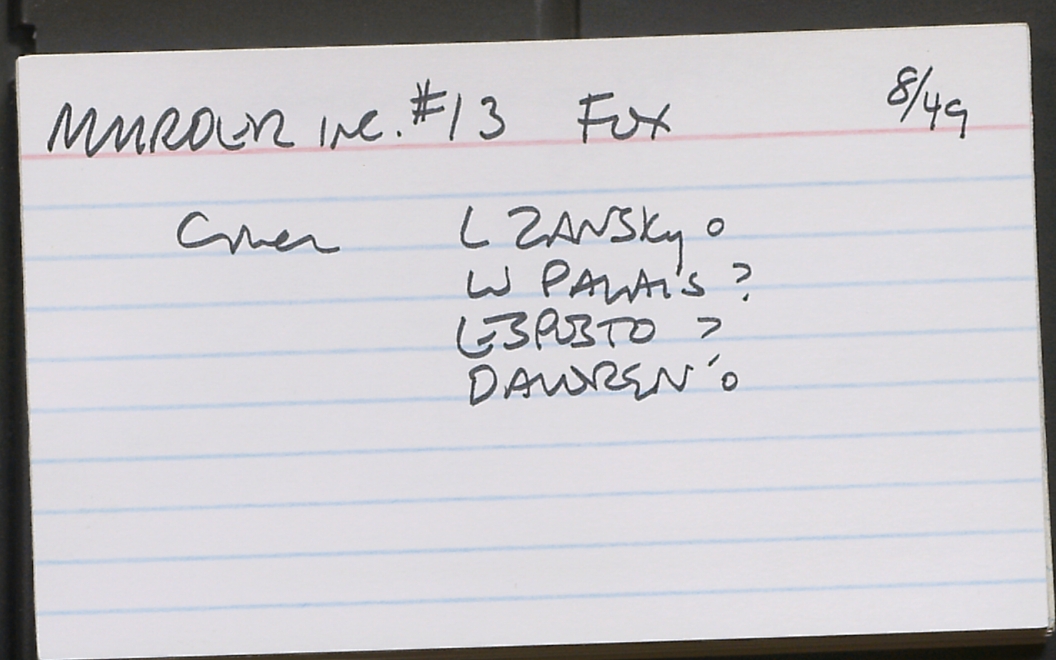 MURDER INC. #13 FOX 8/49
Cover L ZANSKY o
W PALAIS ?
L ESPOSTO ?
DAWREN o